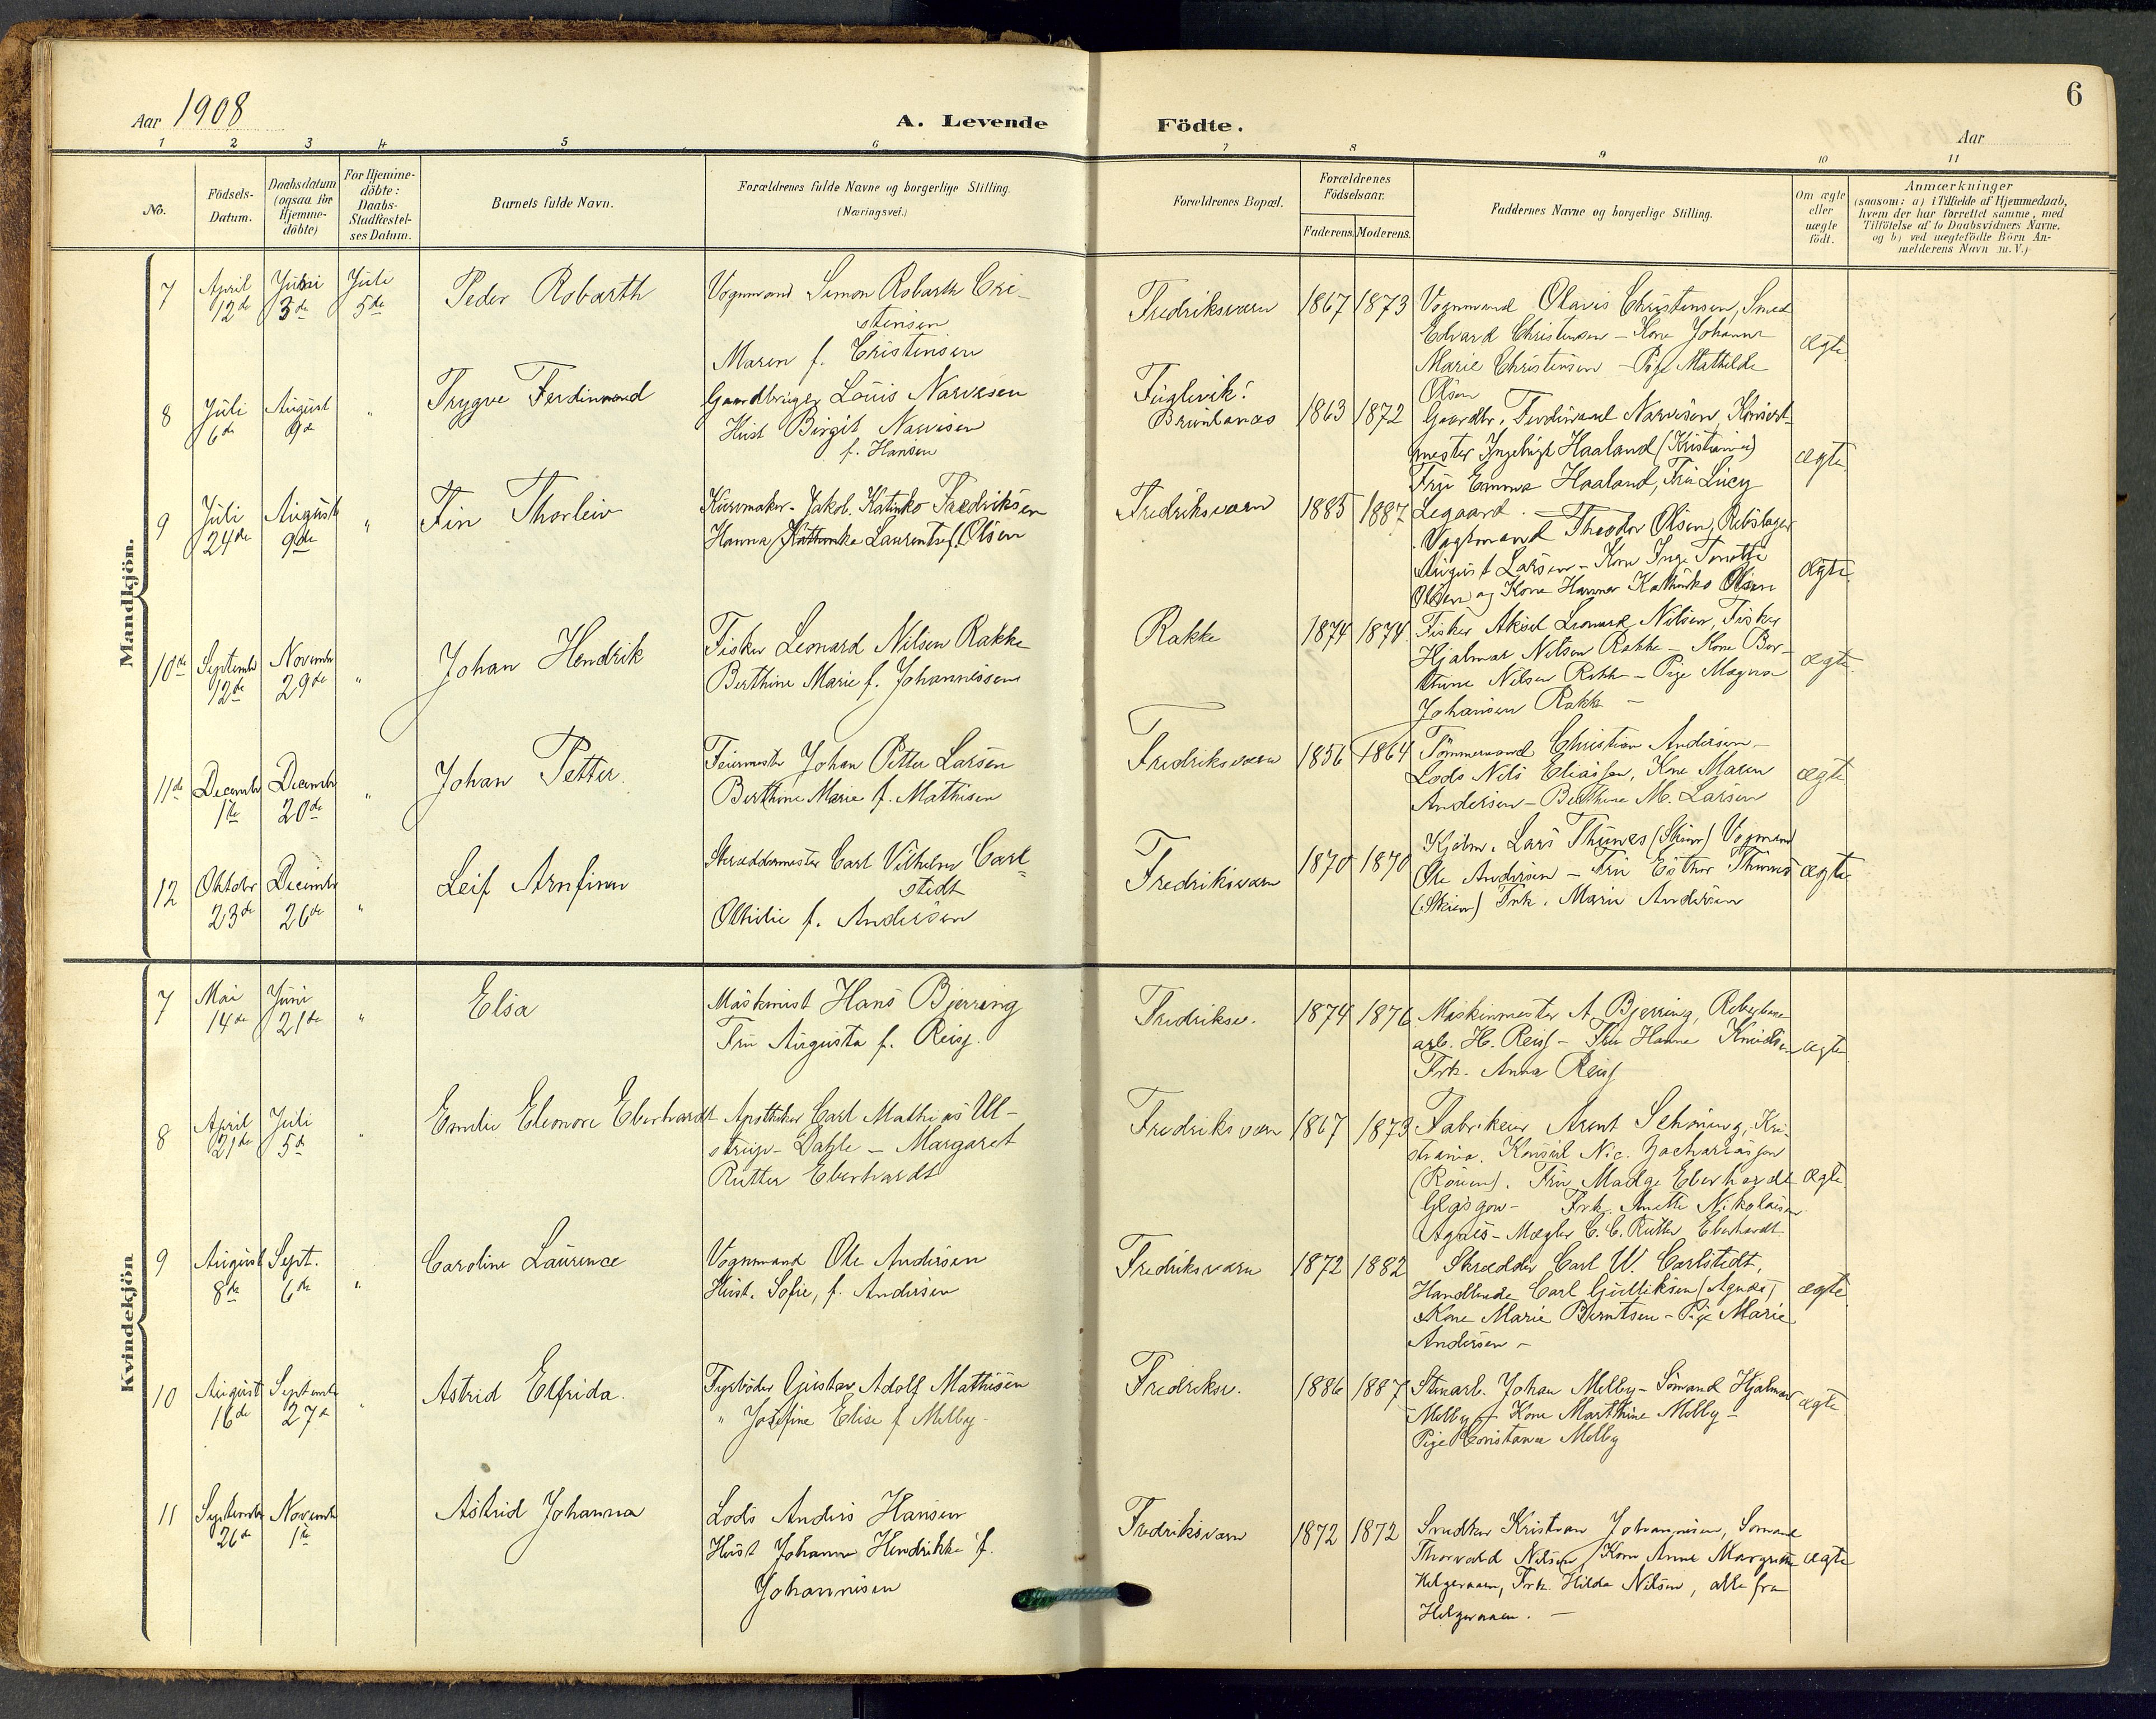 6
Aar 1908
A. Levende Födte.
Aar
1 2 3 4 5 6 7 8 9 10 11
No.
Födsels-
Datum.
Daabsdatum
(ogsaa for
Hjemme-
döbte)
For Hjemme-
döbte:
Daabs-
Stadfæstel-
ses Datum.
Barnets fulde Navn.
Forældrenes fulde Navne og borgerlige Stilling.
(Næringsvei.)
Forældrenes Bopæl.
Forældrenes
Födselsaar.
Faderens. Moderens.
Faddernes Navne og borgerlige Stilling.
Om ægte
eller
uægte
födt.
Anmærkninger
(saasom: a) i Tilfælde af Hjemmedaab,
hvem der har forrettet samme, med
Tilföielse af to Daabsvidners Navne,
og b) ved uægtefödte Börn An-
melderens Navn m. V.)
Mandkjön.
7 April 12de 3de Juli 5te
Peder Robarth
Vognmand Simon Robarth Cri-
stensen
Maren f. Cristensen
Fredriksværn 1867 1873
Vognmand Olavis Christensen, Smed
Edvard Christensen - Kone Johanne
Marie Christensen - Pige Mathilde
Olsen
ægte
8 Juli 6te August 9de "
Trygve Ferdinand
Gaardbruger Louis Narvesen
Hust Birgit Narvesen
f. Hansen
Fuglevik:
Brunlanæs 1863 1872
Gaardbr. Ferdinand Narvesen, Konsert-
mester Ingebrigt Haaland (Kristiania)
Fru Emma Haaland, Fru Lucy
Legaard.
ægte
9 Juli 24de August 9de "
Fin Thorleiv
Kurvmaker - Jakob Katinko Fredriksen
Hanna Laurentse f. Olsen
Fredriksværn 1885 1887
Vagtmand Theodor Olsen, Rebslager
August Larsen - Kone Inga Tonette
Olsen og Kone Hanna Kathinka Olsen
ægte.
10de September 12de Novembr 29de "
Johan Hendrik
Fisker Leonard Nilsen Rakke
Berthine Marie f. Johannessen
Rakke 1874 1874
Fisker Aksel Leonard Nilsen, Fisker
Hjalmar Nilsen Rakke - Kone Ber-
thine Nilsen Rakke - Pige Magna
Johansen Rakke -
ægte.
11de Decembr 1ste Decembr 20de "
Johan Petter.
Feiermester Johan Petter Larsen
Berthine Marie f. Mathisen
Fredriksværn 1856 1864
Tömmermand Christian Andersen -
Lods Nils Eliassen, Kone Maren
Andersen - Berthine M. Larsen
ægte
12 Oktobr 23de Decembr 26de "
Leif Arnfinn
Skræddermester Carl Vilhelm Carl-
stedt
Othilie f. Andersen
Fredriksværn 1870 1870
Kjobm. Lars Thunes (Skien) Vognmand
Ole Andersen - Fru Esther Thunes
(Skien) Frk. Marie Andersen
ægte
Kvindekjön
7 Mai 14de Juni 21de "
Elsa
Maskinist Hans Bjerring
Fru Augusta f. Reiss.
Fredriksv. 1874 1876
Maskinmester A. Bjerring, Reberbane
arb. H. Reiss - Fru Hanna Knudsen
Frk. Anna Reiss
ægte
8 April 21de Juli 5te "
Emilie Eleonore Eberhardt
Apotheker Carl Mathias Ul-
strup-Dahle - Margaret
Rutter Eberhardt
Fredriksværn 1867 1873
Fabrikeier Arent Schöning, Kri-
stiania. Konsul Nic. Zachariassen
(Rouen). Fru Madge Eberhardt
Glasgow - Frk. Anette Nikolaisen
Agnes - Mægler C. C. Rutter Eberhardt.
ægte
9 August 8de Sept. 6te "
Caroline Laurence
Vognmand Ole Andersen
Hust. Sofie, f. Andersen
Fredriksværn 1872 1882
Skrædder Carl W. Carlstedt,
Handlende Carl Gulliksen (Agnes)
Kone Marie Berntsen - Pige Marie
Andersen -
ægte
10 August 16de Septembr 27de "
Astrid Elfrida.
Fyrböder Gustav Adolf Mathisen
" Josefine Elise f. Melby -
Fredriksv. 1886 1887
Stenarb. Johan Melby - Sömand Hjalmar
Melby - Kone Marthine Melby -
Pige Constance Melby
ægte
11 Septembr 26de Novembr 1ste
Astrid Johanna
Lods Anders Hansen
Hust Johanne Hendrikke f.
Johannesen
Fredriksværn 1872 1872
Snedker Kristian Johannesen, Sömand
Thorvald Nilsen, Kone Anne Margrethe
Helgeraaen, Frk. Hilda Nilsen, alle fra
Helgeraaen. -
ægte